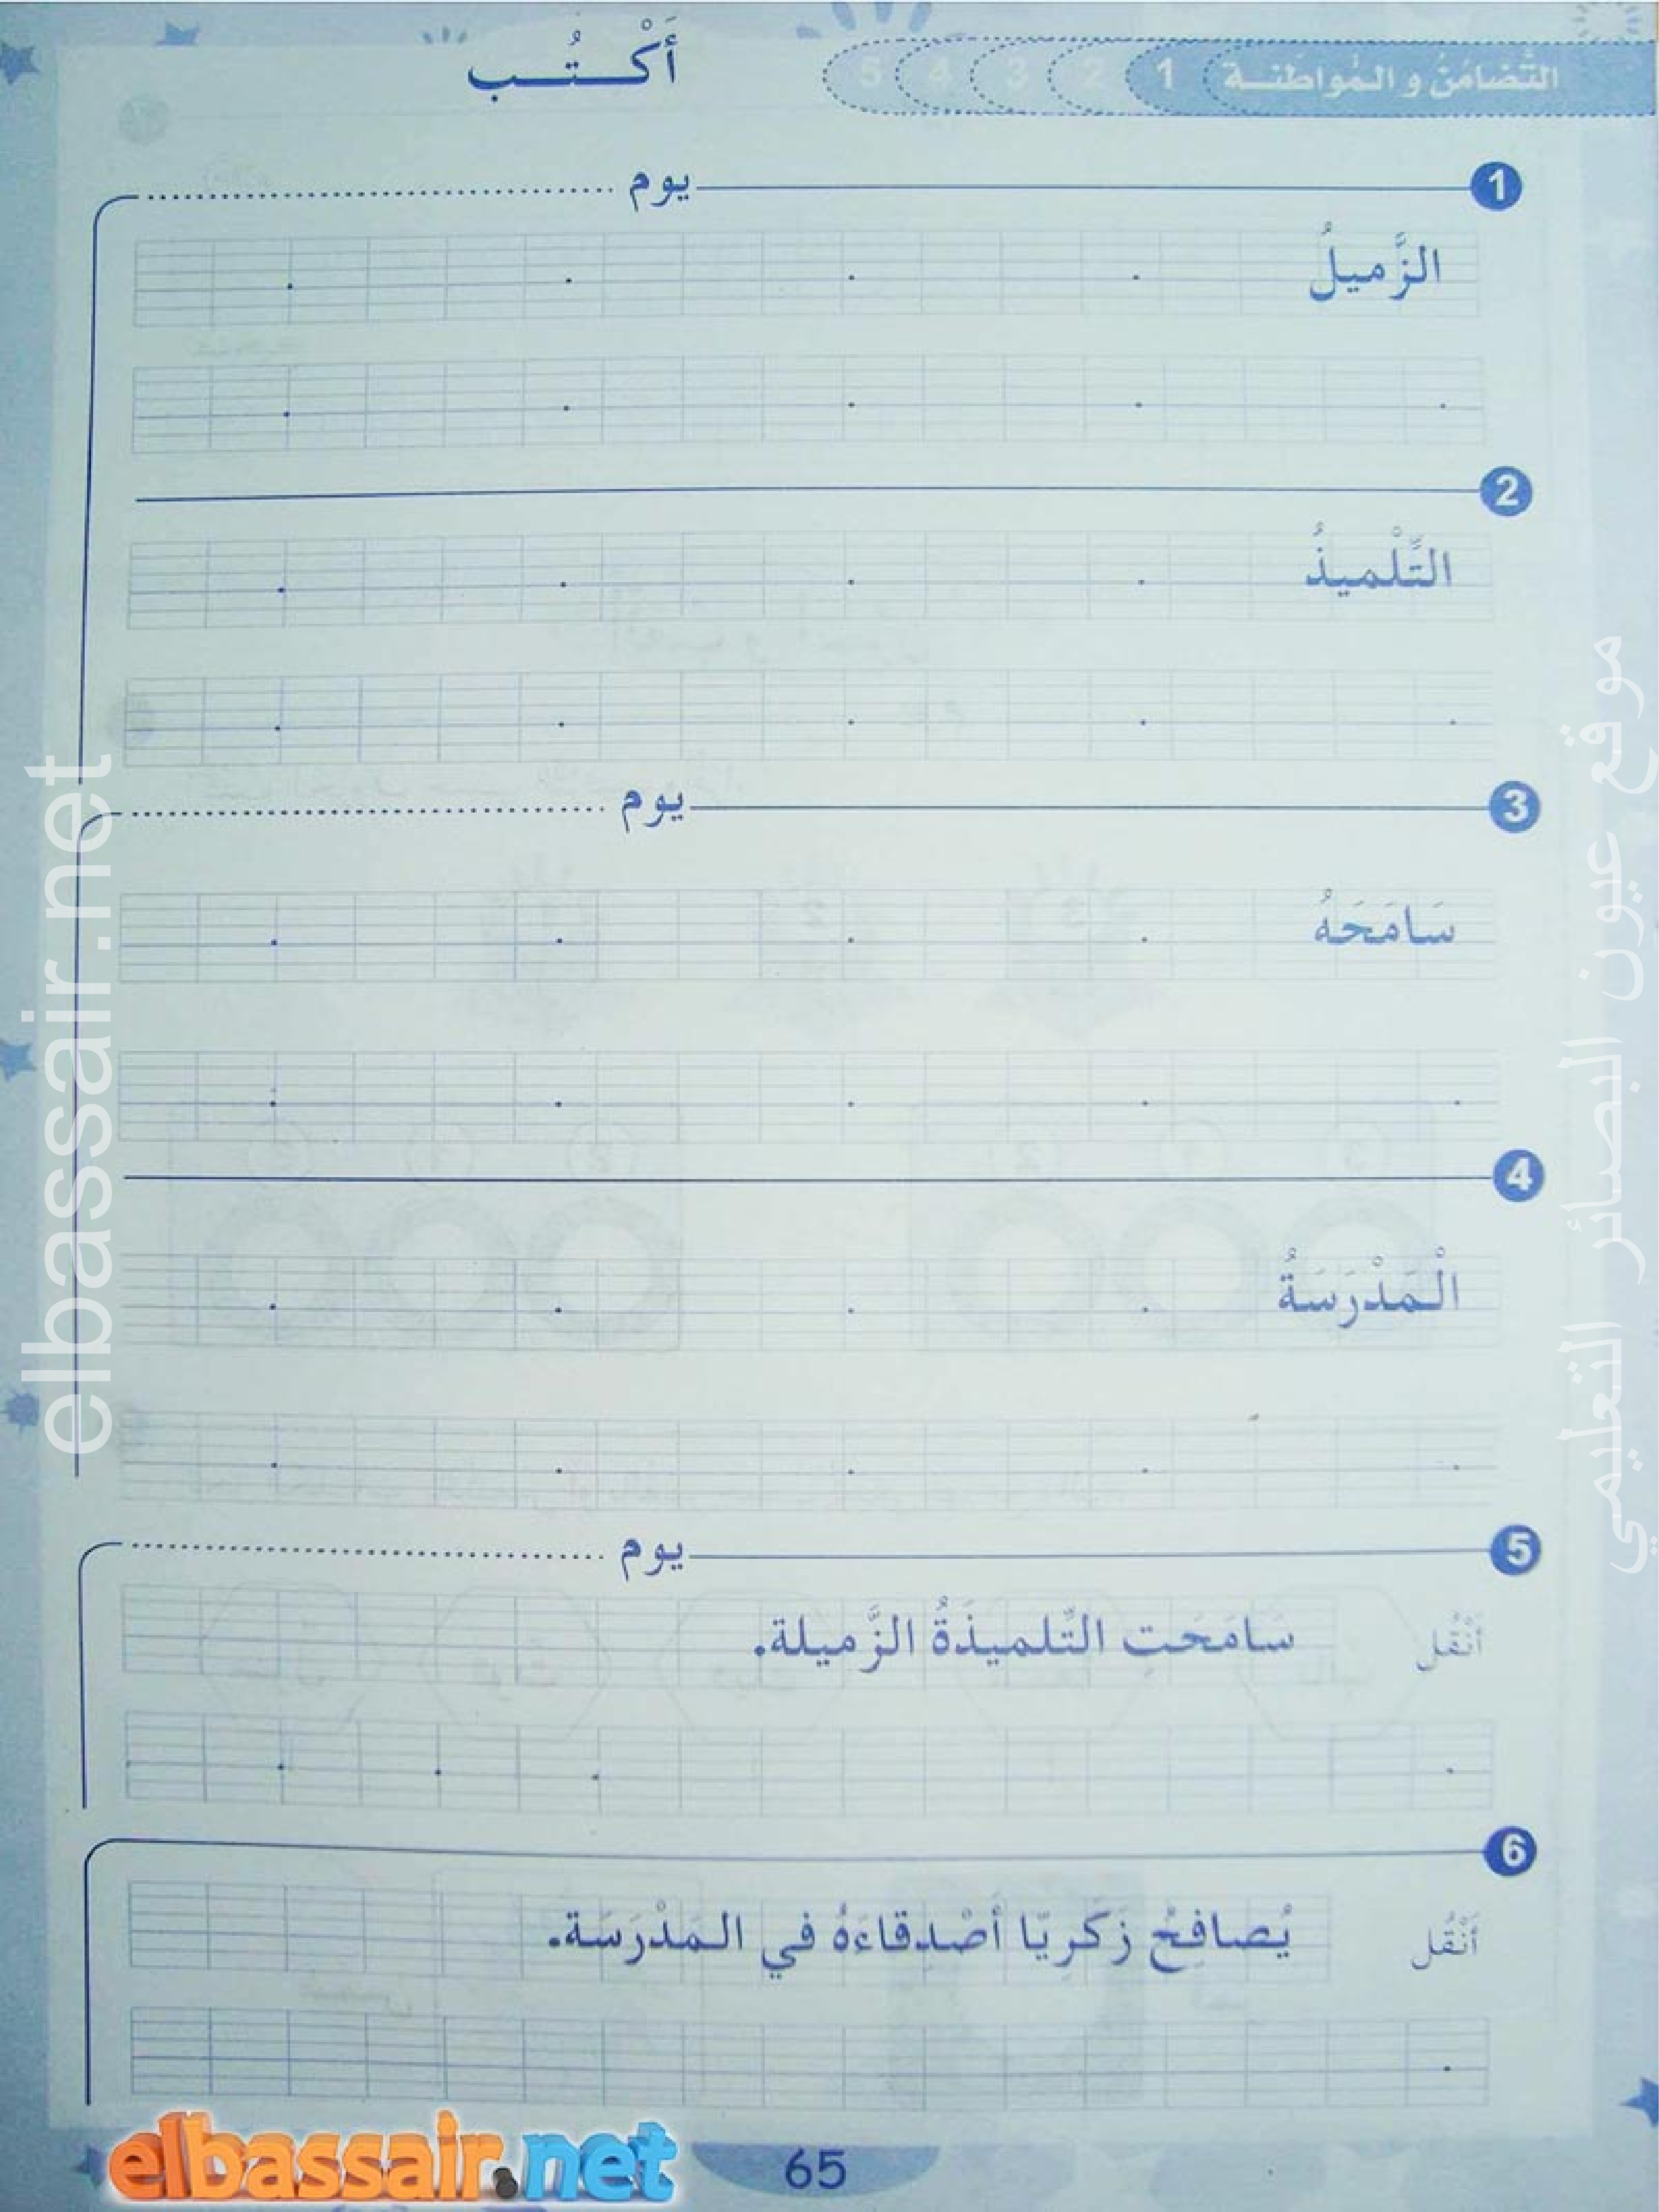 التَّضامُنُ و المُواطَنـة 1 2 3 4 5
أَكْـتُـب
1 يوم
الزَّميلُ
2
التِّلْميذُ
3 يوم
سَامَحَهُ
4
الْمَدْرَسَةُ
5 يوم
أَنْقُل سَامَحَتِ التِّلميذَةُ الزَّميلة.
6
أَنْقُل يُصافِحُ زَكَرِيّا أَصْدِقاءَهُ في المَدْرَسَة.
65
elbassair.net
elbassair.net
موقع عيون البصائر التعليمي